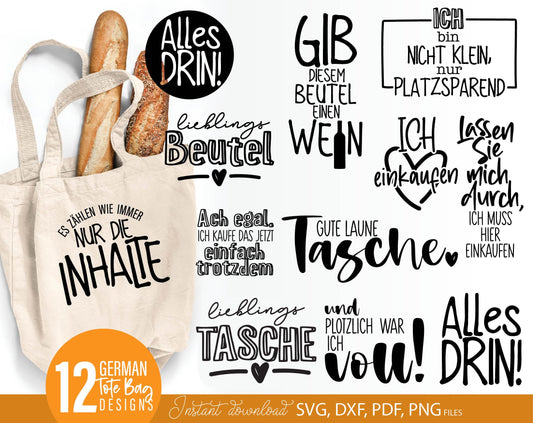 Alles
DRIN!
GIB
DIESEM
BEUTEL
EINEN
WEIN
ICH
bin
NICHT KLEIN,
nur
PLATZSPAREND
lieblings
Beutel
ICH
einkaufen
Lassen
Sie
mich
durch,
ICH MUSS
HIER
EINKAUFEN
ES ZÄHLEN WIE IMMER
NUR DIE
INHALTE
Ach egal.
ICH KAUFE DAS JETZT
einfach
trotzdem
GUTE LAUNE
Tasche.
lieblings
TASCHE
und
PLOTZLICH WAR
ICH
voll!
ALLES
DRIN!
12 GERMAN
Tote Bag
DESIGNS
Instant download SVG, DXF, PDF, PNG FILES